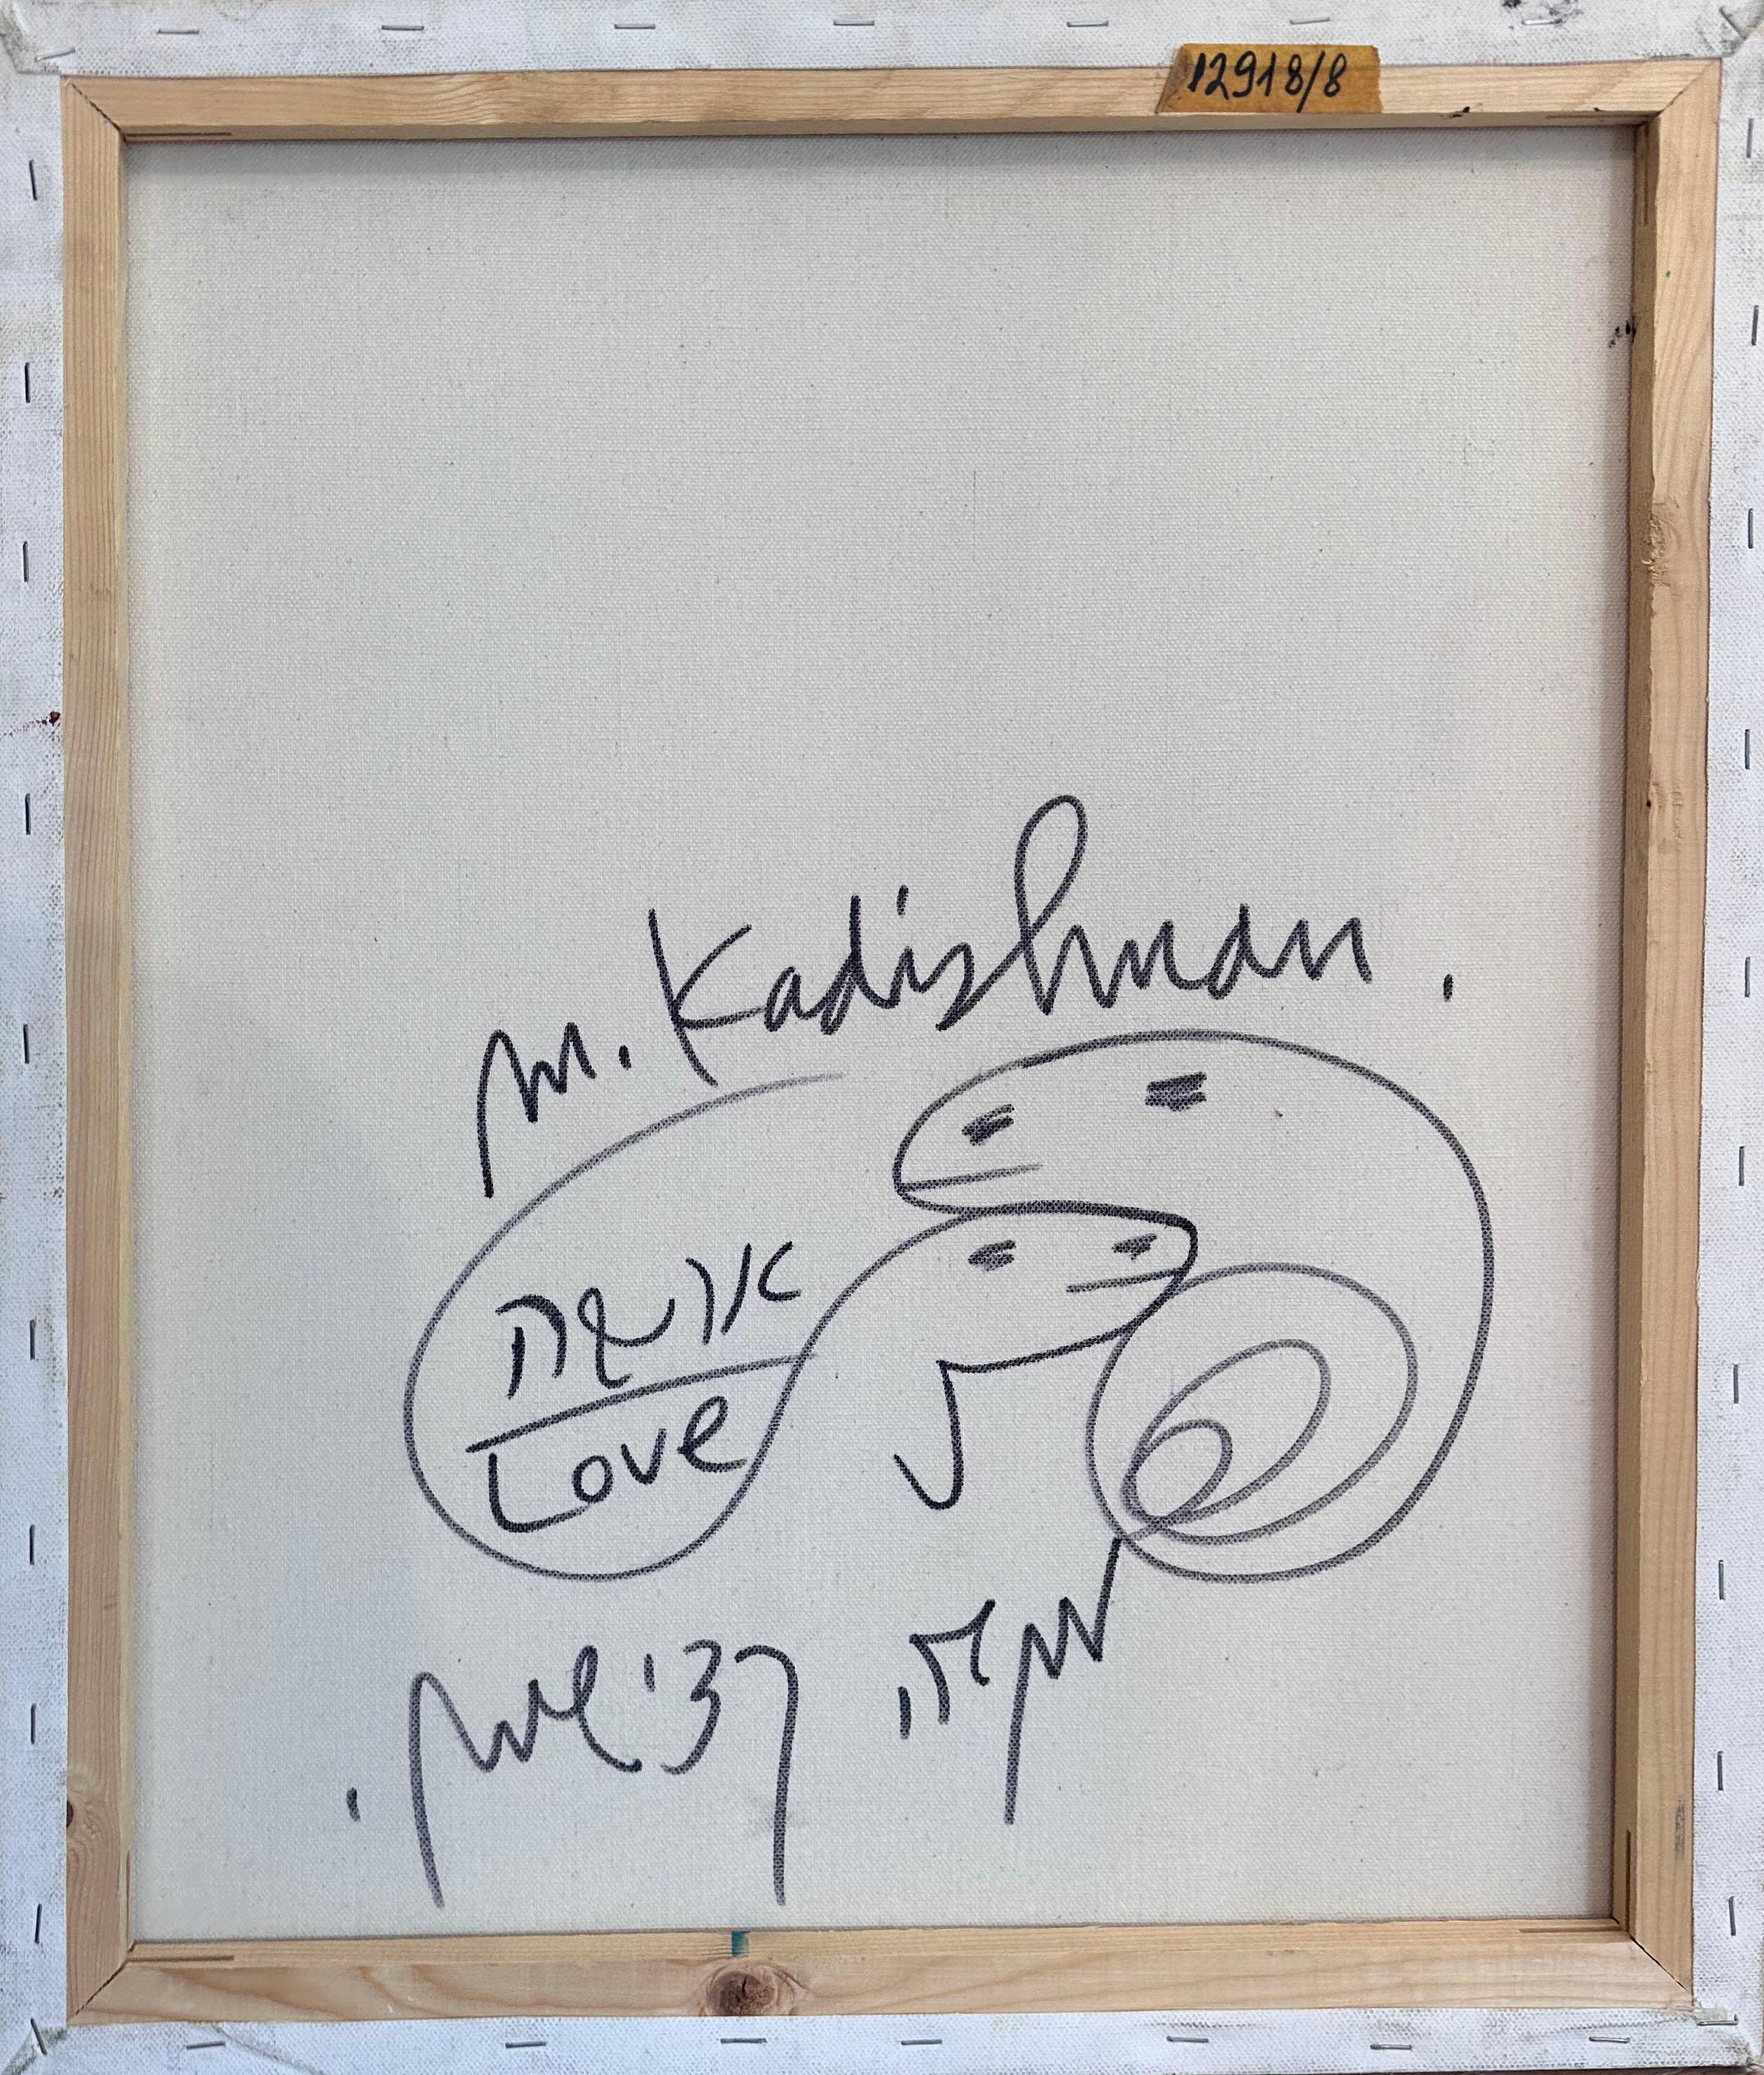 12918/8
M. Kadishman.
אהבה
Love
מנשה קדישמן.